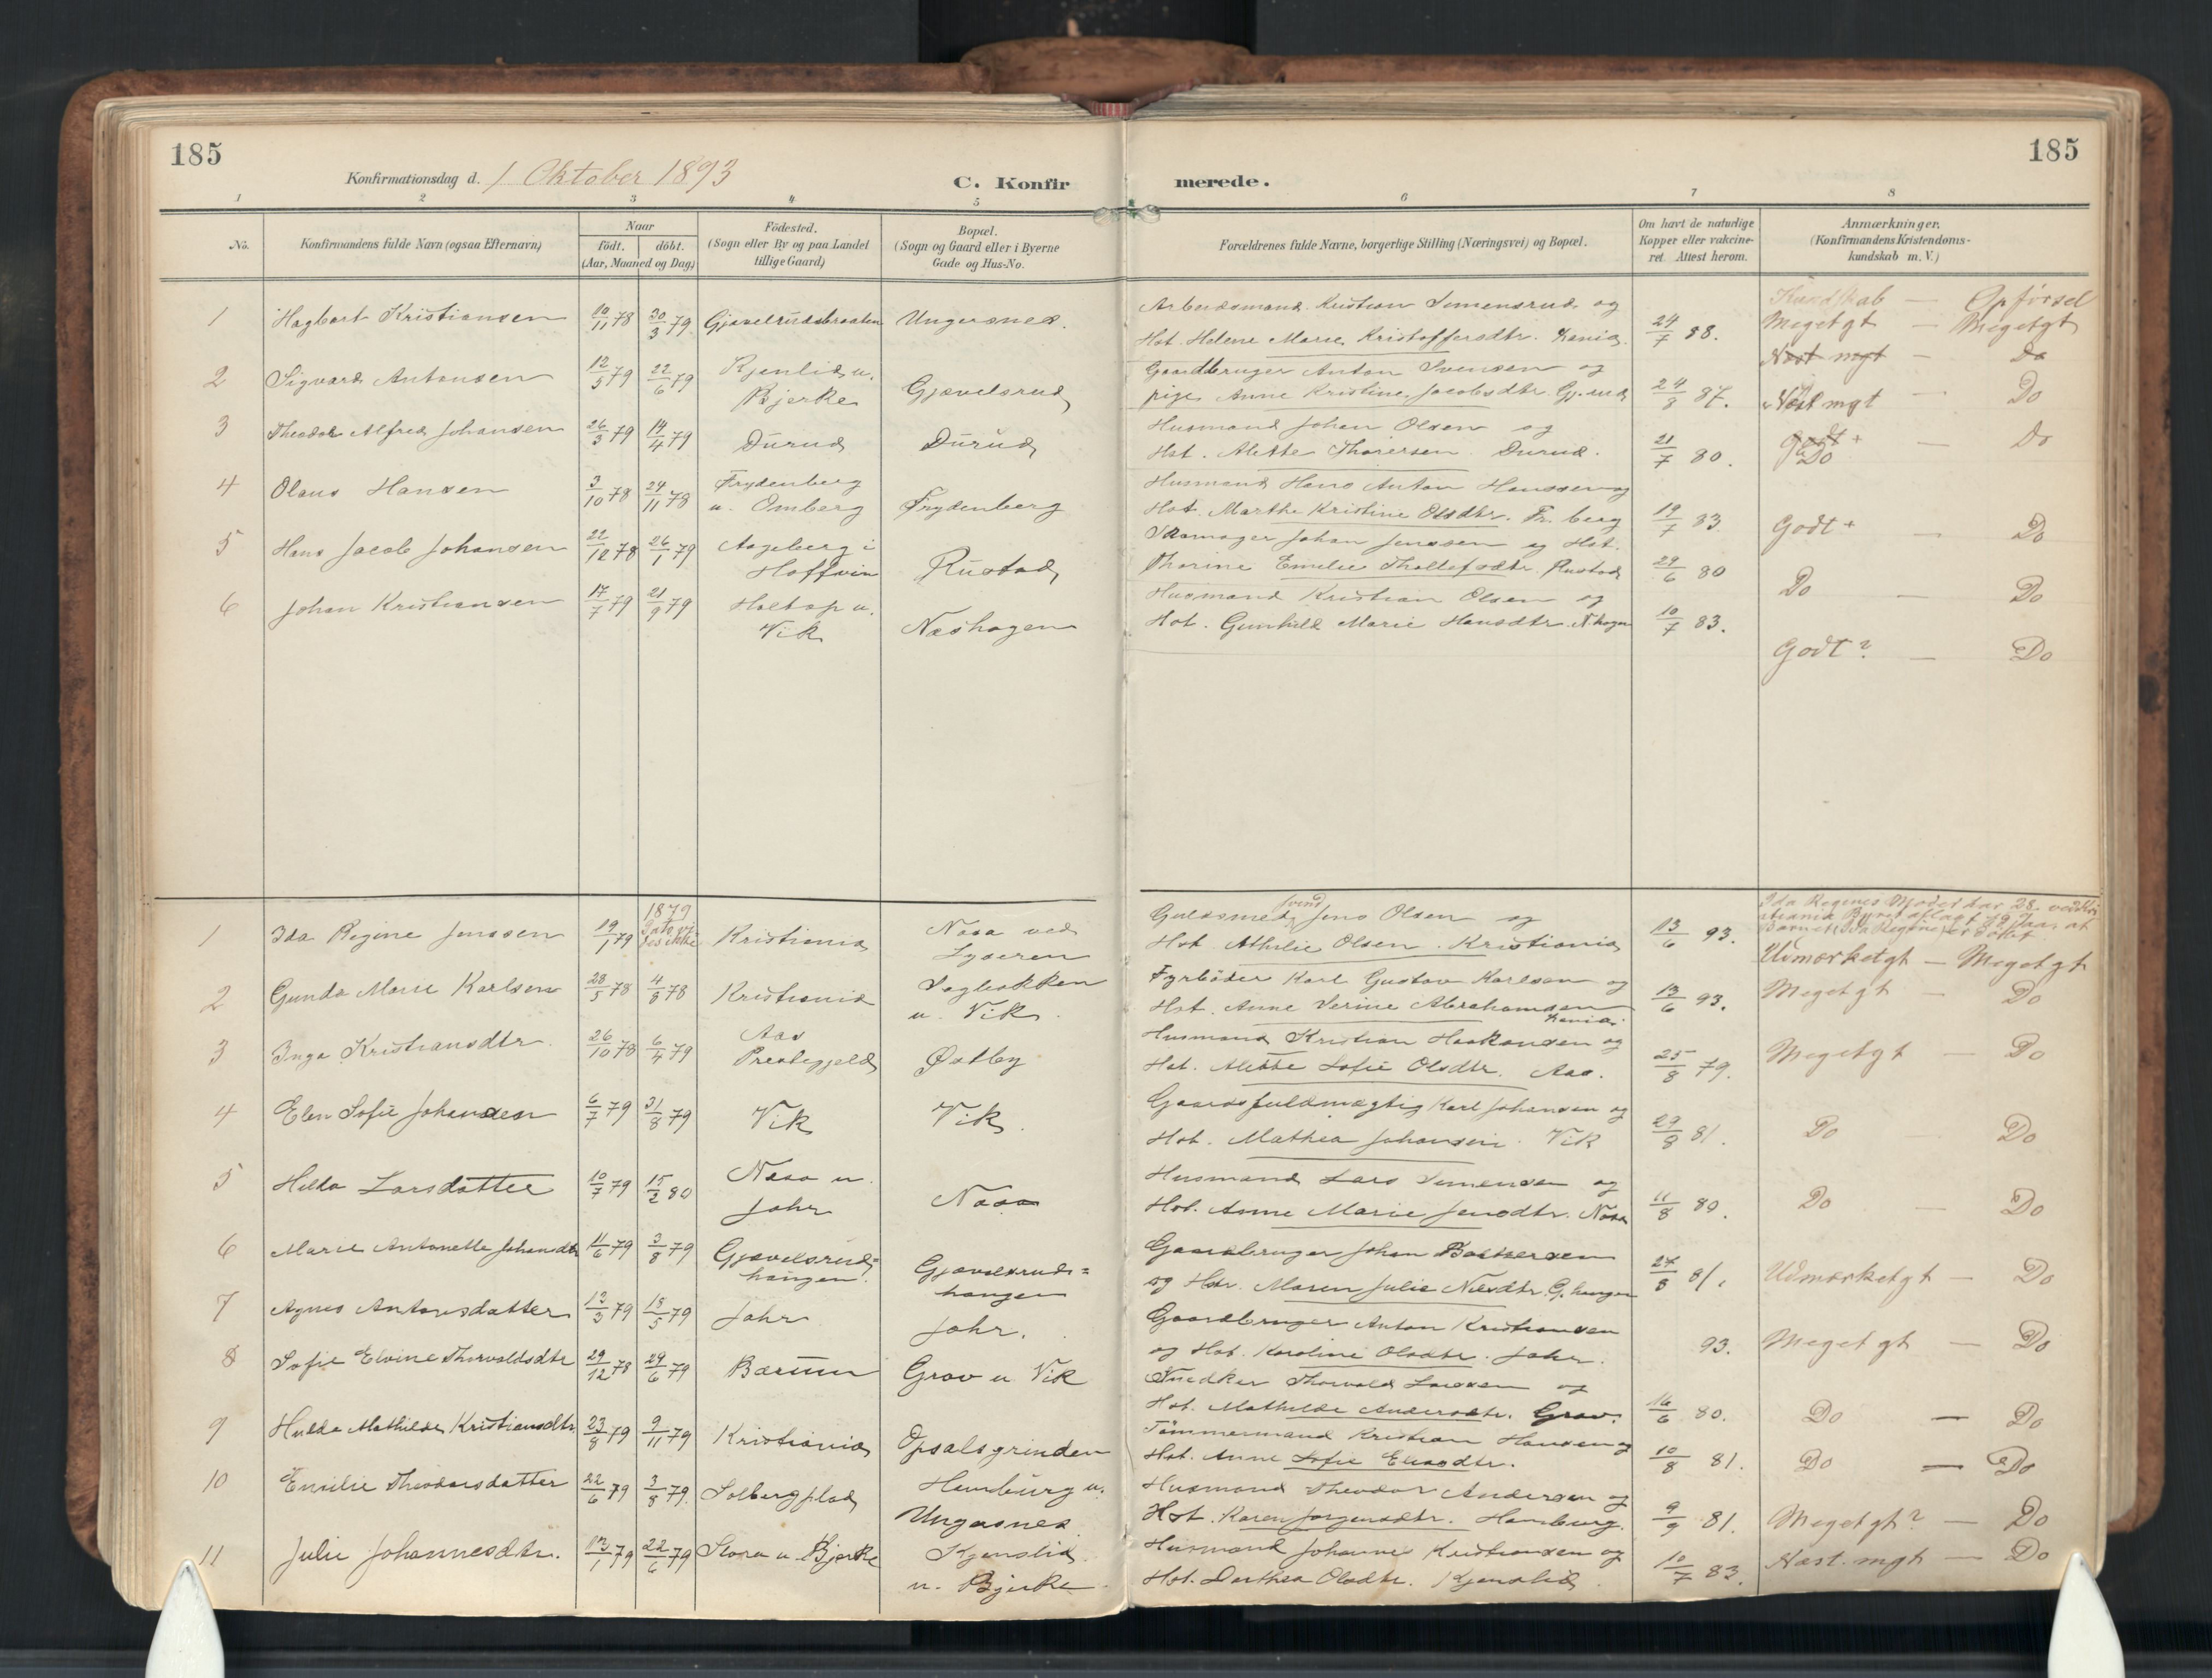 185
Konfirmationsdag d. 1 Oktober 1893
C. Konfir
merede.
185
1 2 3 4 5 6 7 8
No.
Konfirmandens fulde Navn (ogsaa Efternavn)
Naar
födt. döbt.
(Aar, Maaned og Dag)
Födested.
(Sogn eller By og paa Landet
tillige Gaard)
Bopæl.
(Sogn og Gaard eller i Byerne
Gade og Hus-No.
Forældrenes fulde Navne, borgerlige Stilling (Næringsvei) og Bopæl.
Om havt de naturlige
Kopper eller vakcine-
ret. Attest herom.
Anmærkninger.
(Konfirmandens Kristendoms-
kundskab m. V.)
Kundskab — Opførsel
1 Hagbart Kristiansen 10/11 78 30/3 79 Gjævelrudsbraaten Ungersnes.
Arbeidsmand Kristian Simensrud og
Hst. Helene Marie Kristoffersdtr. Kania. 24/7 88. Megetgt — Megetgt
Næst mgt — Do
2 Sigvard Antonsen 12/5 79 22/6 79 Kjenlid u.
Bjerke Gjævelsrud
Gaardbruger Anton Svensen og
pige Anne Kristine Jacobsdtr. Gj.rud 24/8 87. Næst mgt — Do
3 Theodor Alfred Johansen 26/3 79 14/4 79 Durud Durud
Husmand Johan Olsen og
Hst. Alette Thorersen. Durud. 21/7 80. Godt + — Do
Do
4 Olaus Hansen 3/10 78 24/11 78 Frydenberg
u. Omberg Frydenberg
Husmand Hans Anton Hanssen og
Hst. Marthe Kristine Olsdtr. Fr. berg 19/7 83. Godt + — Do
5 Hans Jacob Johansen 22/12 78 26/1 79 Aageberg i
Hoffvin Rustad
Skomager Johan Jenssen og Hst.
Thorine Emilie Thollefsdtr. Rustad 29/6 80 Do — Do
6 Johan Kristiansen 17/7 79 21/9 79 Holtop u.
Vik Næshagen
Husmand Kristian Olsen og
Hst. Gunhild Marie Hansdtr. N.hagen 10/7 83.
Godt? — Do
1 Ida Regine Jenssen 19/1 79 1879
Dato vi
des ikke Kristiania Næsa ved
Lyseren
Guldsmedsvend Jens Olsen og
Hst. Athilie Olsen. Kristiania 13/6 93.
Ida Regines Moder har 28. ved Kri
stiania Byret aflagt Ed paa at
Barnet (Ida Regine) er døbt
Udmærketgt — Megetgt
2 Gunda Marie Karlsen 28/5 78 4/8 78 Kristiania Sagbakken
u. Vik.
Fyrbøder Karl Gustav Karlsen og
Hst. Anne Verine Abrahamsen
Kania. 13/6 93. Megetgt — Do
3 Inga Kristiansdtr. 26/10 78 6/4 79 Aas
Prestegjeld Østby
Husmand Kristian Haakonsen og
Hst. Alette Sofie Olsdtr. Aas. 25/8 79. Megetgt — Do
4 Elen Sofie Johansen 6/7 79 31/8 79 Vik Vik.
Gaardsfuldmægtig Karl Johansen og
Hst. Mathea Johansen. Vik 29/8 81. Do Do
5 Hilda Larsdatter 10/7 79 15/2 80 Næsa u.
Jahr Næsa
Husmand Lars Simensen og
Hst. Anne Marie Jensdtr. Næsa 11/8 80. Do — Do
6 Marie Antonette Johansdtr 11/6 79 3/8 79 Gjævelsrud=
hangen. Gjævelsruds=
hangen
Gaardbruger Johan Baltzersen
og Hstr. Maren Julie Nilsdtr. G.hangen 27/8 81. Udmærketgt — Do
7 Agnes Antonsdatter 12/3 79 18/5 79 Jahr Jahr.
Gaardbruger Anton Kristiansen
og Hst. Karoline Olsdtr. Jahr. 93. Megetgt — Do
8 Sofie Elvine Thorvaldsdtr 29/12 78 29/6 79 Bærum Grav u Vik
Snedker Thorvald Larssen og
Hst. Mathilde Andersdtr. Grav. 16/6 80. Do — Do
9 Hulda Mathilde Kristiansdtr 23/8 79 9/11 79 Kristiania Opsalsgrinden
Tømmermand Kristian Hansen og
Hst. Anne Sofie Eliasdtr. 10/8 81. Do — Do
10 Emilie Theodorsdatter 22/6 79 3/8 79. Solbergplad Hamburg u.
Ungersnes.
Husmand Theodor Andersen og
Hst. Karen Jørgensdtr. Hamburg. 9/9 81. Megetgt? — Do
11 Julie Johannesdtr. 13/1 79 22/6 79 Stora u. Bjerke Kjenslid
u. Bjerke
Husmand Johannes Kristiansen og
Hst. Dorthea Olsdtr. Kjenslid. 10/7 83. Næst. mgt — Do